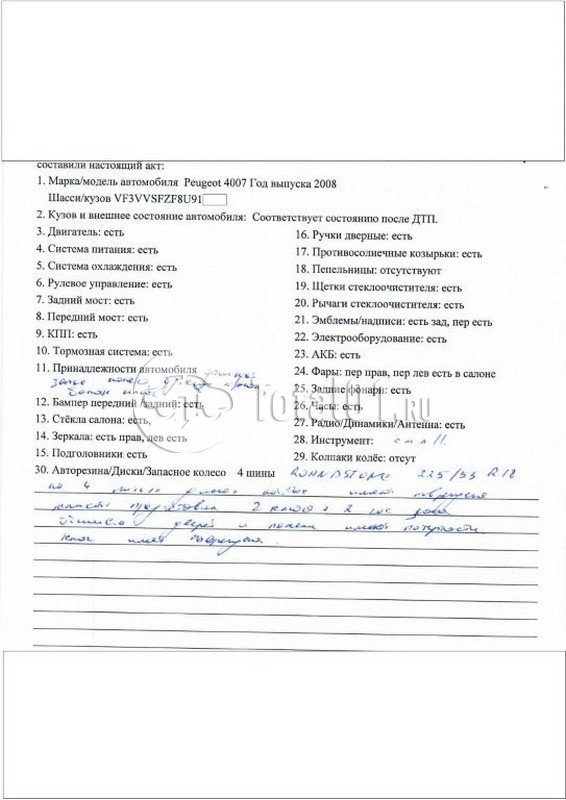 составили настоящий акт:
1. Марка/модель автомобиля Peugeot 4007 Год выпуска 2008
Шасси/кузов VF3VVSFZF8U91
2. Кузов и внешнее состояние автомобиля: Соответствует состоянию после ДТП.
3. Двигатель: есть
4. Система питания: есть
5. Система охлаждения: есть
6. Рулевое управление: есть
7. Задний мост: есть
8. Передний мост: есть
9. КПП: есть
10. Тормозная система: есть
11. Принадлежности автомобиля
12. Бампер передний /задний: есть
13. Стёкла салона: есть,
14. Зеркала: есть прав, лев есть
15. Подголовники есть
16. Ручки дверные: есть
17. Противосолнечные козырьки: есть
18. Пепельницы: отсутствуют
19. Щетки стеклоочистителя: есть
20. Рычаги стеклоочистителя: есть
21. Эмблемы/надписи: есть зад, пер есть
22. Электрооборудование: есть
23. АКБ: есть
24. Фары: пер прав, пер лев есть в салоне
25. Задние фонари: есть
26. Часы: есть
27. Радио/Динамики/Антенна: есть
28. Инструмент:
29. Колпаки колёс: отсут
30. Авторезина/Диски/Запасное колесо 4 шины ROADSTONE 225/55 R18
на 4 имеют
2 ключа + 2
дверей и имеют
имеет
Total01.RU